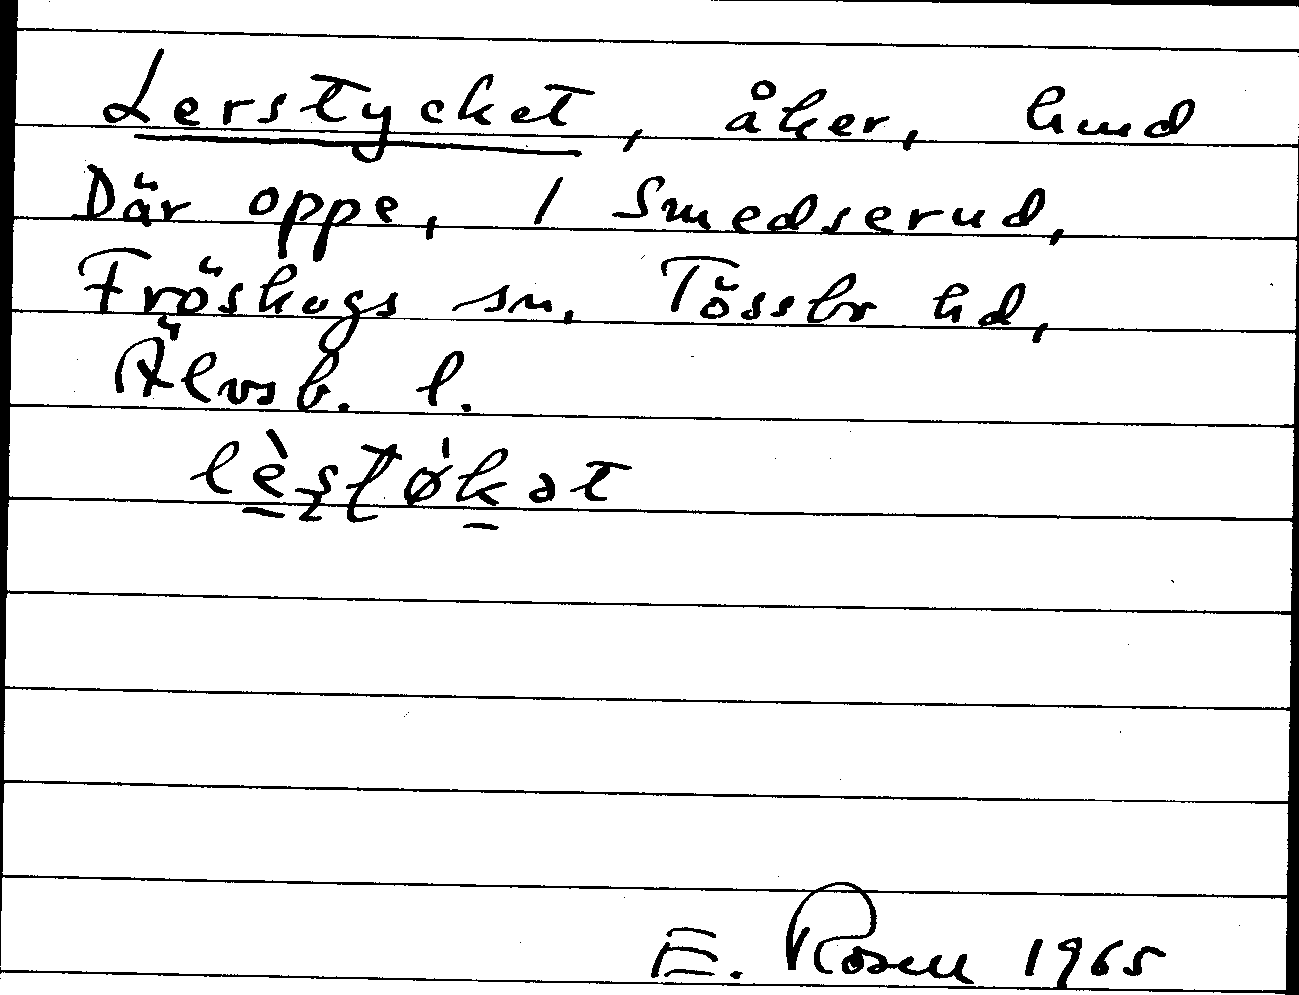 Lerstycket, åker, hmd
Där oppe, 1 Smedserud,
Fröskogs sn, Tössbo hd,
Älvsb. l.
lèʂʈøkət
E. Rosell 1965